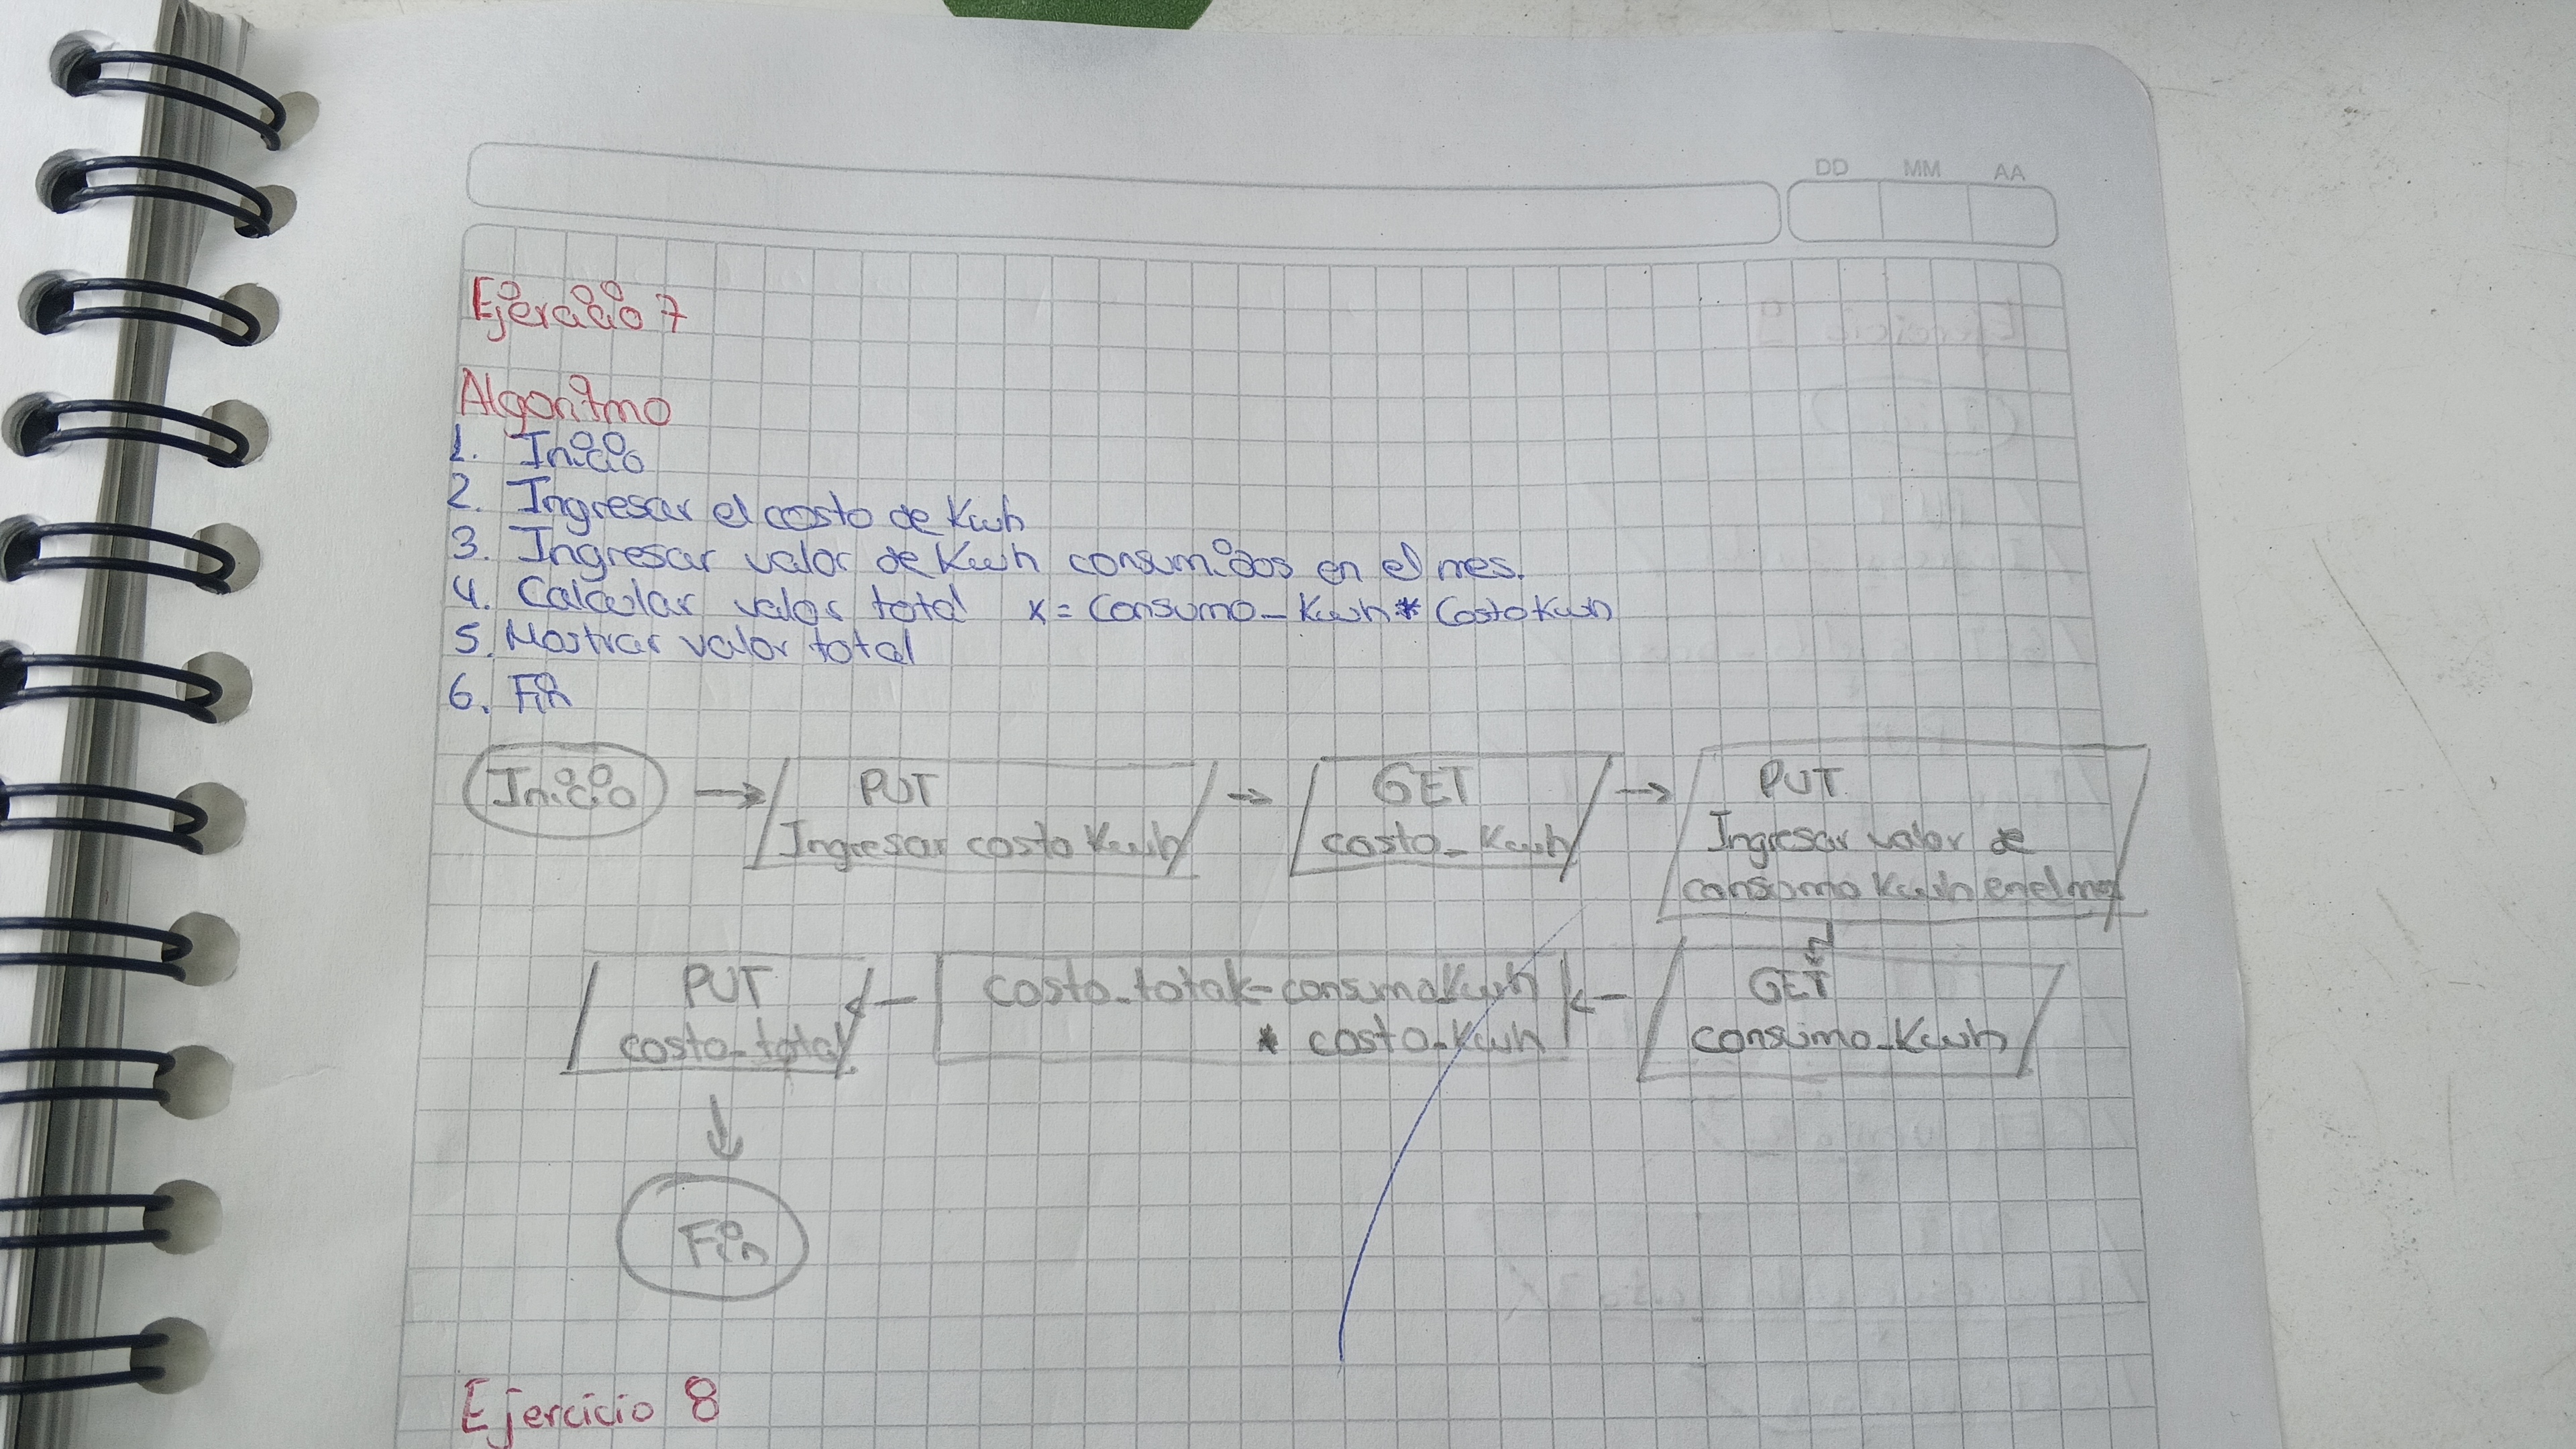 DD MM AA
Ejercicio 7
Algoritmo
1. Inicio
2. Ingresar el costo de Kwh
3. Ingresar valor de Kwh consumidos en el mes.
4. Calcular valor total x = Consumo_Kwh * CostoKwh
5. Mostrar valor total
6. Fin
Inicio
PUT
Ingresar costo Kwh
GET
costo_Kwh
PUT
Ingresar valor de
consumo Kwh en el mes
GET
consumo_Kwh
costo_total<-consumoKwh
* costo_Kwh
PUT
costo_total
Fin
Ejercicio 8